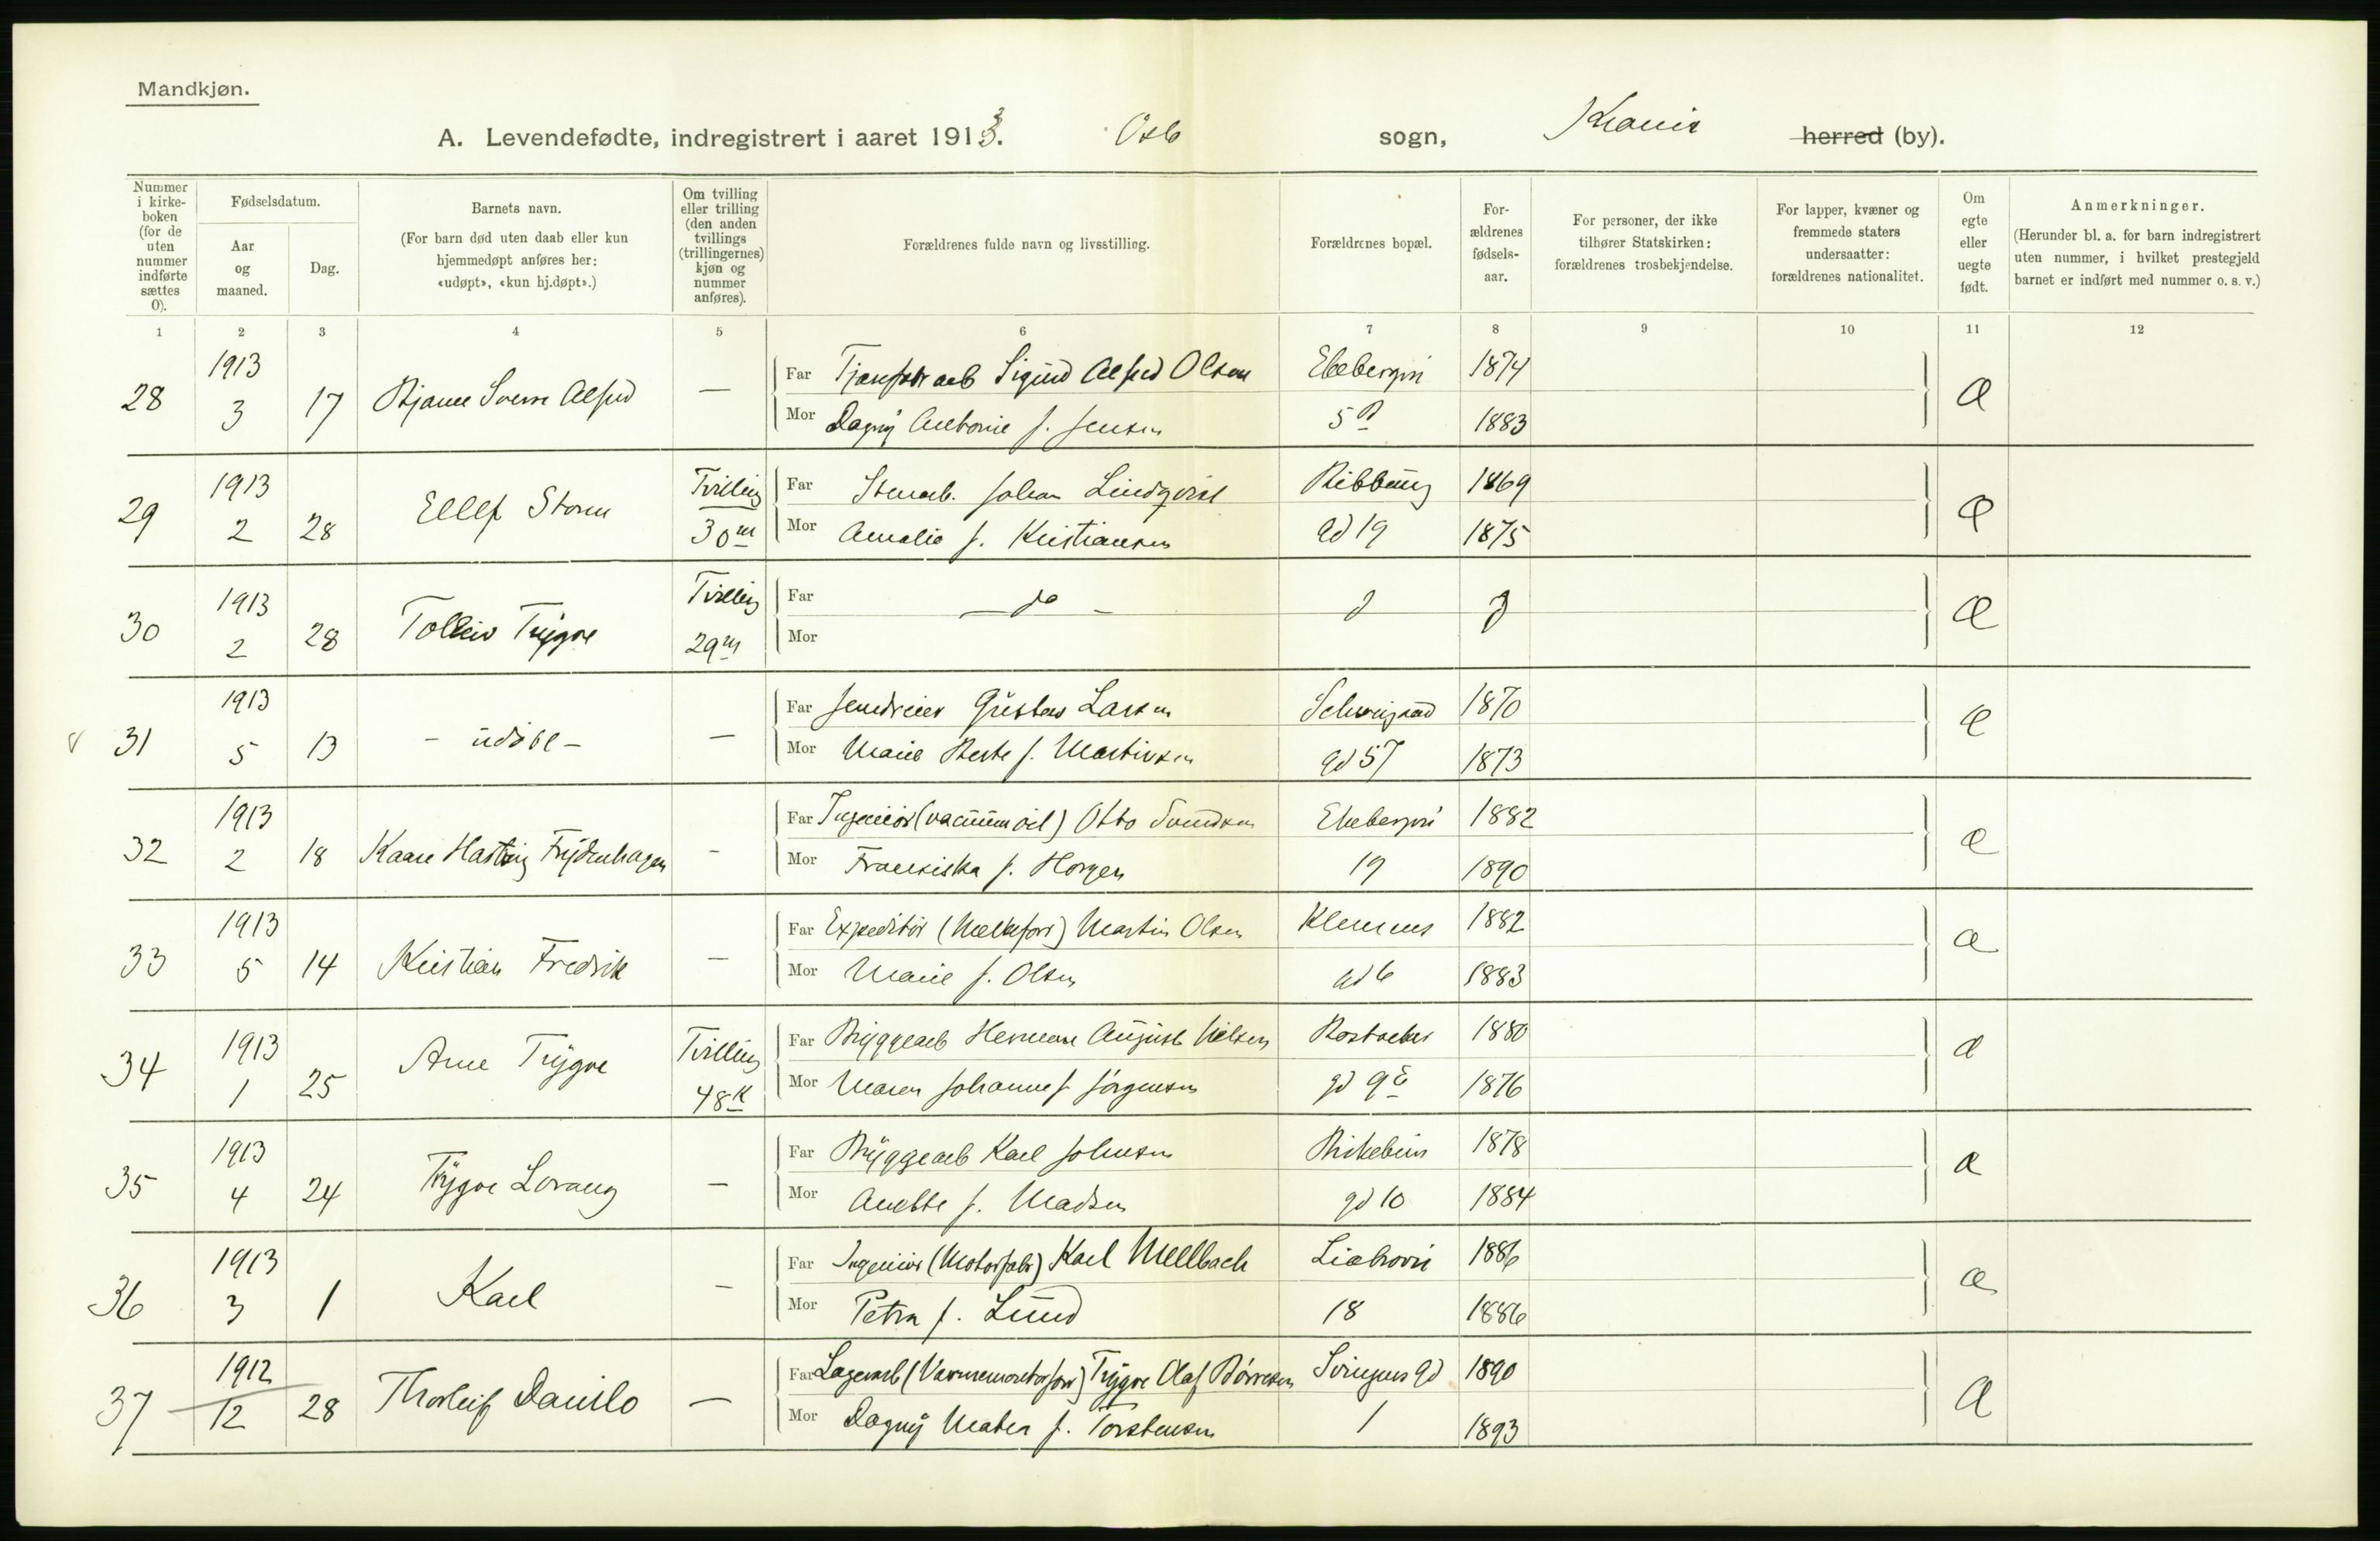 Mandkjøn.
A. Levendefødte, indregistrert i aaret 1913. Oslo sogn, Krania herred (by).
Nummer i kirke-boken (for de uten nummer indførte sættes 0).
Fødselsdatum.
Aar og maaned.
Dag.
Barnets navn.
(For barn død uten daab eller kun hjemmedøpt anføres her: «udøpt», «kun hj.døpt».)
Om tvilling eller trilling (den anden tvillings (trillingernes) kjøn og nummer anføres).
Forældrenes fulde navn og livsstilling.
Forældrenes bopæl.
For-ældrenes fødsels-aar.
For personer, der ikke tilhører Statskirken: forældrenes trosbekjendelse.
For lapper, kvæner og fremmede staters undersaatter: forældrenes nationalitet.
Om egte eller uegte født.
Anmerkninger.
(Herunder bl. a. for barn indregistrert uten nummer, i hvilket prestegjeld barnet er indført med nummer o. s. v.)
1 2 3 4 5 6 7 8 9 10 11 12
28 1913 3 17 Bjarne Sverre Alfred —
Far Sigurd Alfred Olsen Ekebergvi 1874
Mor Dagny Antonie f. Jensen 5 B 1883
29 1913 2 28 Ellef Storm Tvilling 30 m
Far Stenarb. Johan Lindqvist Ribbung 1869
Mor Amalie f. Kristiansen gd 19 1875
30 1913 2 28 Tolleiv Trygve Tvilling 29 m
Far — do —
Mor
31 1913 5 13 - udöbt - —
Far Gustav Larsen Schweigaard 1870
Mor Marie Berte f. Martinsen gd 57 1873
32 1913 2 18 Kaare Hartvig Frydenhagen -
Far Ingeniör (vacuum oil) Otto Svendsen Ekebergvi 1882
Mor Fransiska f. Horgen 19 1890
33 1913 5 14 Kristian Fredrik —
Far Expeditör (Melkefors) Martin Olsen Klemens 1882
Mor Marie f. Olsen gd 6 1883
34 1913 1 25 Arne Trygve Tvilling 48 K
Far Bryggearb Herman August Nilsen Bostveker 1880
Mor Maren Johanne f Jörgensen gd 9 E 1876
35 1913 4 24 Trygve Lorang —
Far Bryggearb Karl Johnsen Birkebein 1878
Mor Anette f. Madsen gd 10 1884
36 1913 3 1 Karl -
Far Ingeniör (Motorfabr) Karl Mellbach Liabrovi 1886
Mor Petra f. Lund 18 1886
37 1912 12 28 Thorleif Danilo —
Far Lagerarb (Varmemontorforr) Trygve Olaf Börresen Svingens gd 1890
Mor Dagny f. Torstensen 1 1893